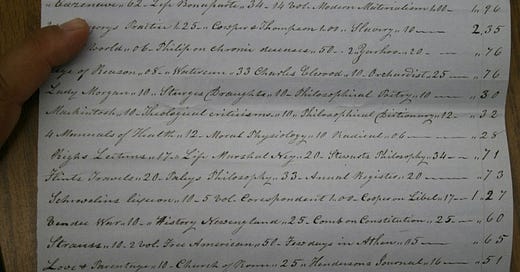 "Cazenove "62 – Life Bonaparte "34 – 14 vol. Modern Materialism 1.00 — " 96
Practice 1.25 – Cooper & Thompson 1.00 Slavery "10 — 2,35
World "06 Philip on chronic diseases "50 – 2 "20 — " 76
Age of Reason "08 – "33 Charles Elwood "10 Orchardist "25 – " 76
Lady Morgan "10 – Sturges Draughts "10 – Philosophical Poetry "10 — " 30
Mackintosh "10 – Theological criticisms "10 – Philosophical Dictionary "12 – " 32
4 Manuals of Health "12 – Moral Physiology "10 Radical "06 — " 28
Righs Lectures "17 – Life Marshal Ney "20 – Stewarts Philosophy "34 — " 71
Flints Travels "20 – Paleys Philosophy "33 – Annual Register "20 — " 73
Schrevelius Lexicon "10 – 5 vol. Correspondent 1.00 – Cooper on Libel "17 – 1,27
Vendee War "10 – History New england "25 – Comb on Constitution "25 — " 60
Strauss "10 – 2 vol. Free American "50 – Few days in Athens "05 — " 65
Love & Parentage "10 – Church of Rome "25 – Hendersons Journal "16 — " 51